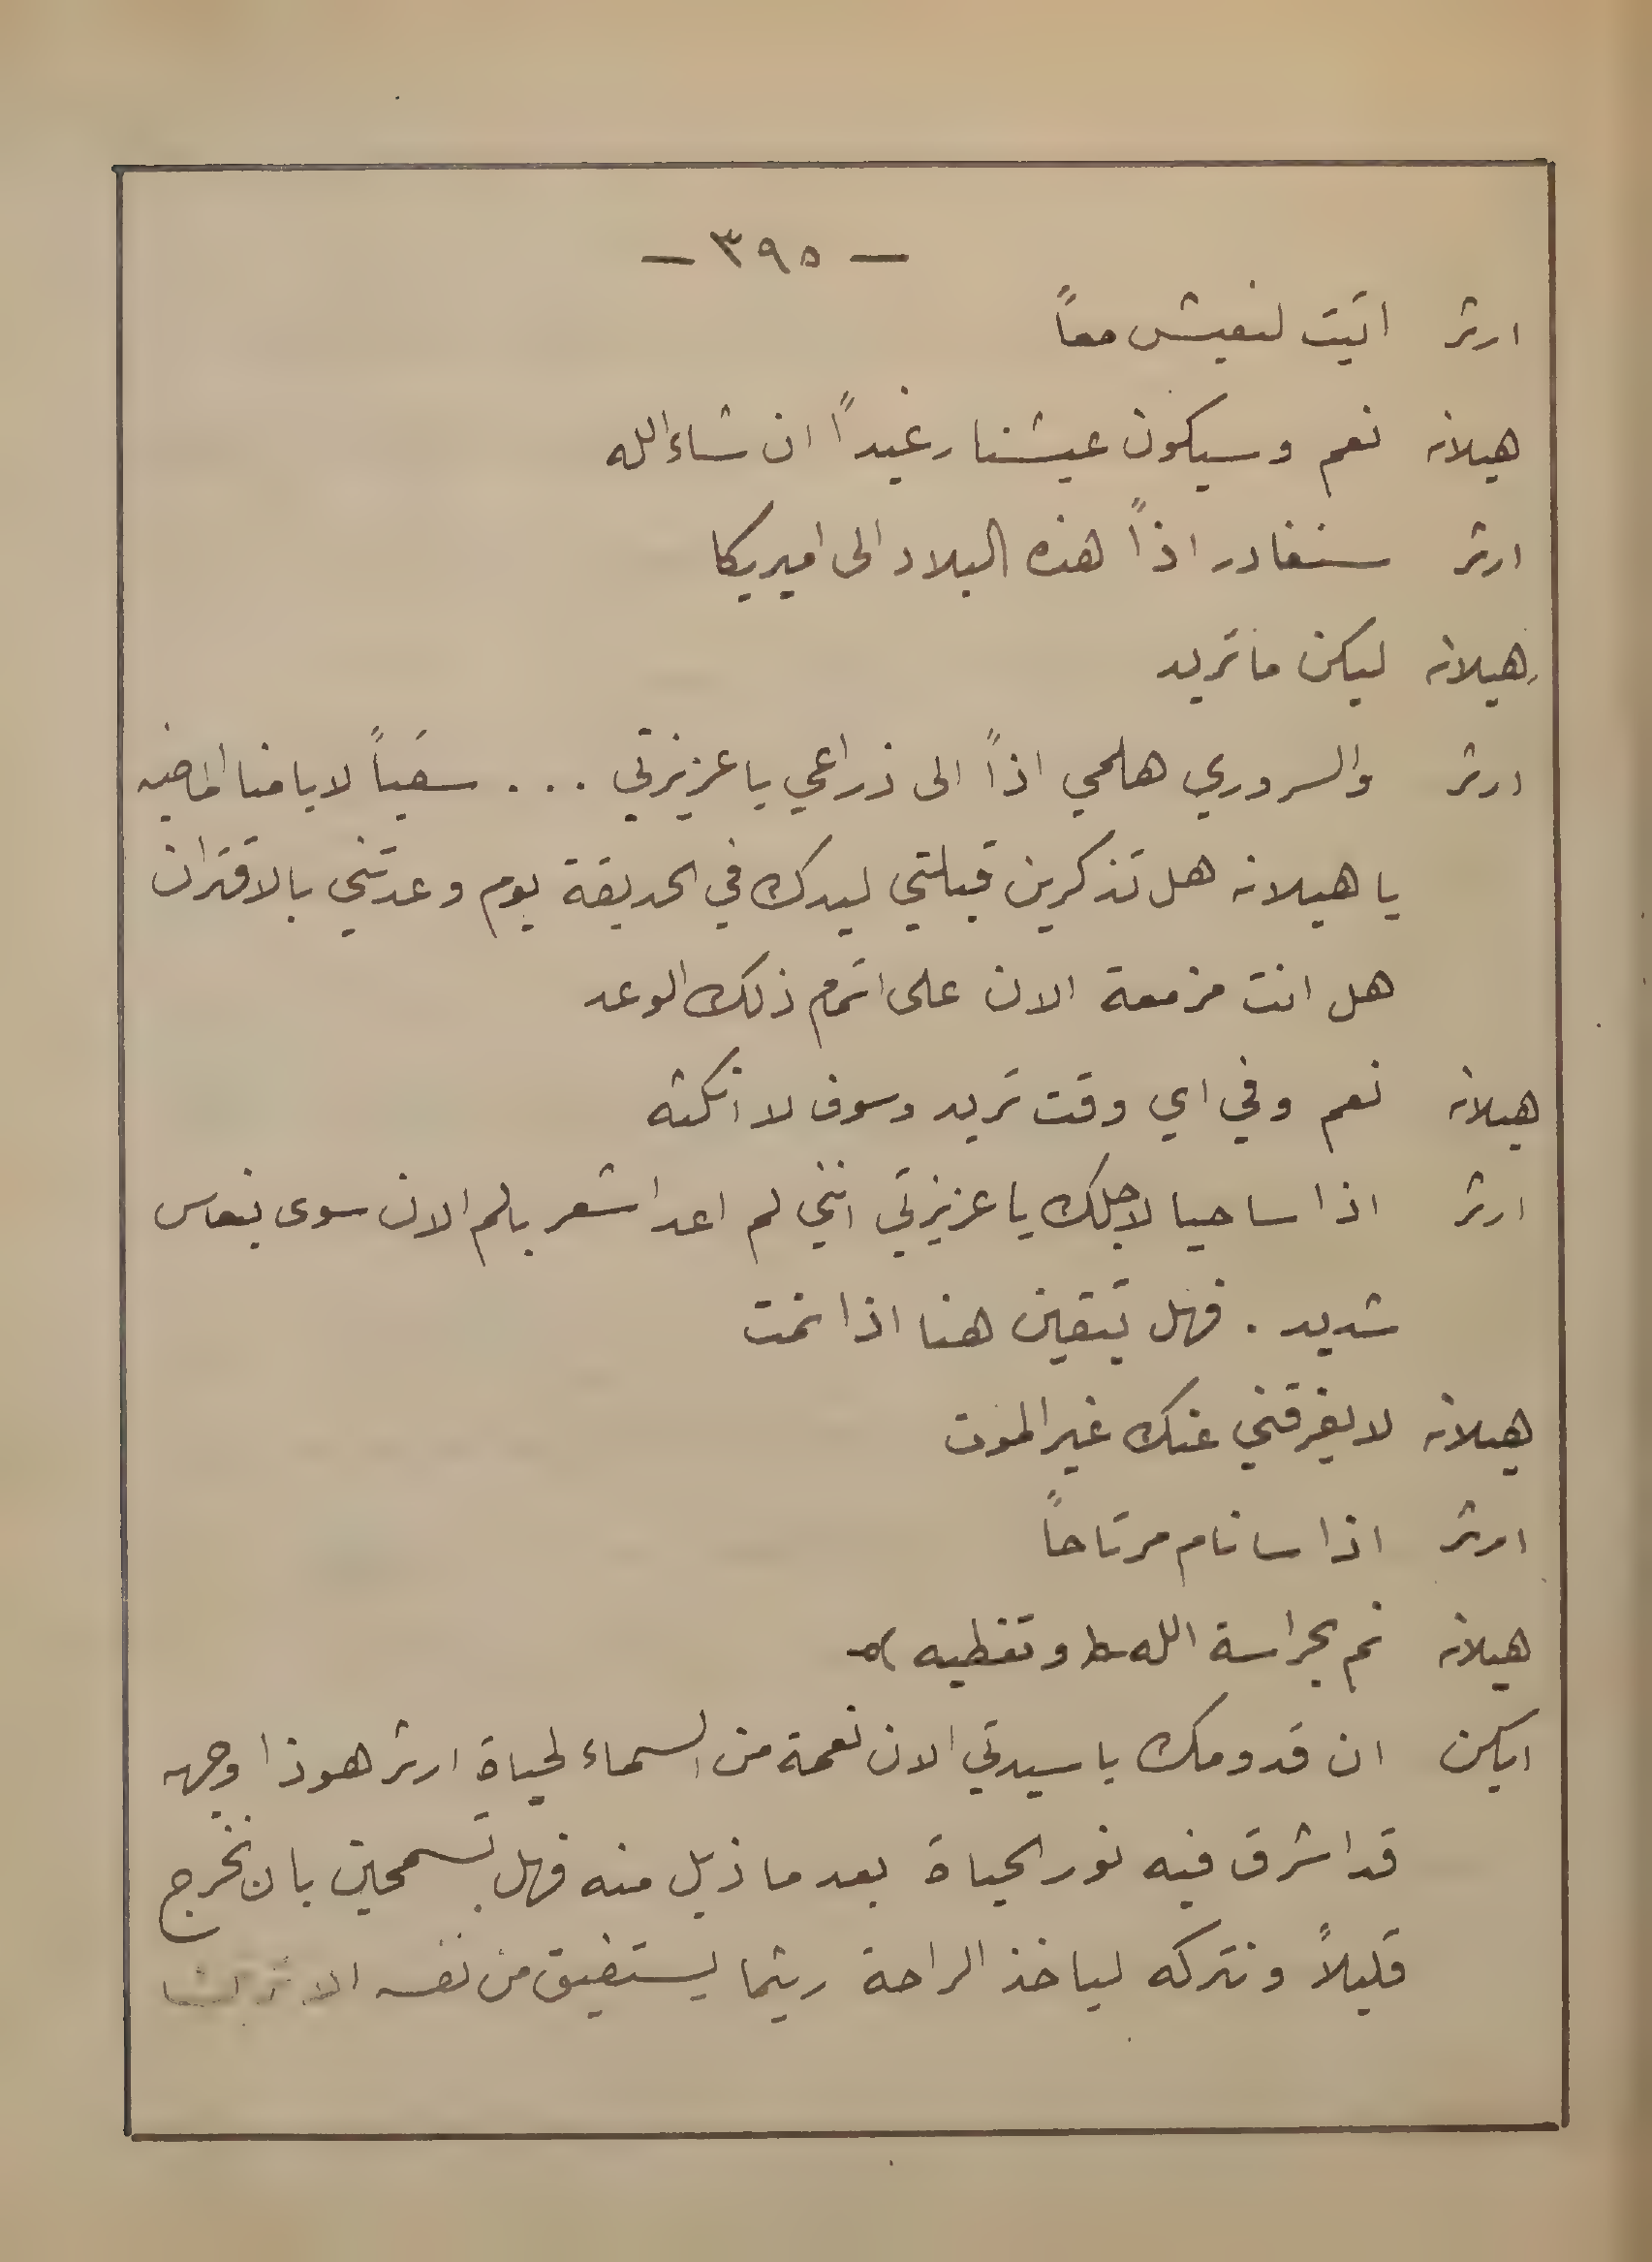 — ٣٩٥ —
ارثر اتيت لنعيش معاً
هيلانه نعم وسيكون عيشنا رغيداً ان شاء الله
ارثر سنغادر اذاً هذه البلاد الى اميريكا
هيلانه ليكن ما تريد
ارثر والسروري هلمي اذاً الى ذراعي يا عزيزتي ... سقياً لايامنا الماضيه
يا هيلانه هل تذكرين قبلتي ليدك في الحديقة يوم وعدتني بالاقتران
هل انت مزمعة الان على اتمام ذلك الوعد
هيلانه نعم وفي اي وقت تريد وسوف لا انكثه
ارثر اذا ساحيا لاجلك يا عزيزتي انني لم اعد اشعر بالم الان سوى بنعاس
شديد . فهل تبقين هنا اذا نمت
هيلانه لا يفرقني عنك غير الموت
ارثر اذا سانام مرتاحاً
هيلانه نم بحراسة الله وتغطيه
ايكن ان قدومك يا سيدتي الان نعمة من السماء لحياة ارثر هوذا وجهه
قد اشرق فيه نور الحياة بعد ما ذبل منه فهل تسمحين بان نخرج
قليلاً ونتركه لياخذ الراحة ريثما يستفيق من نفسه